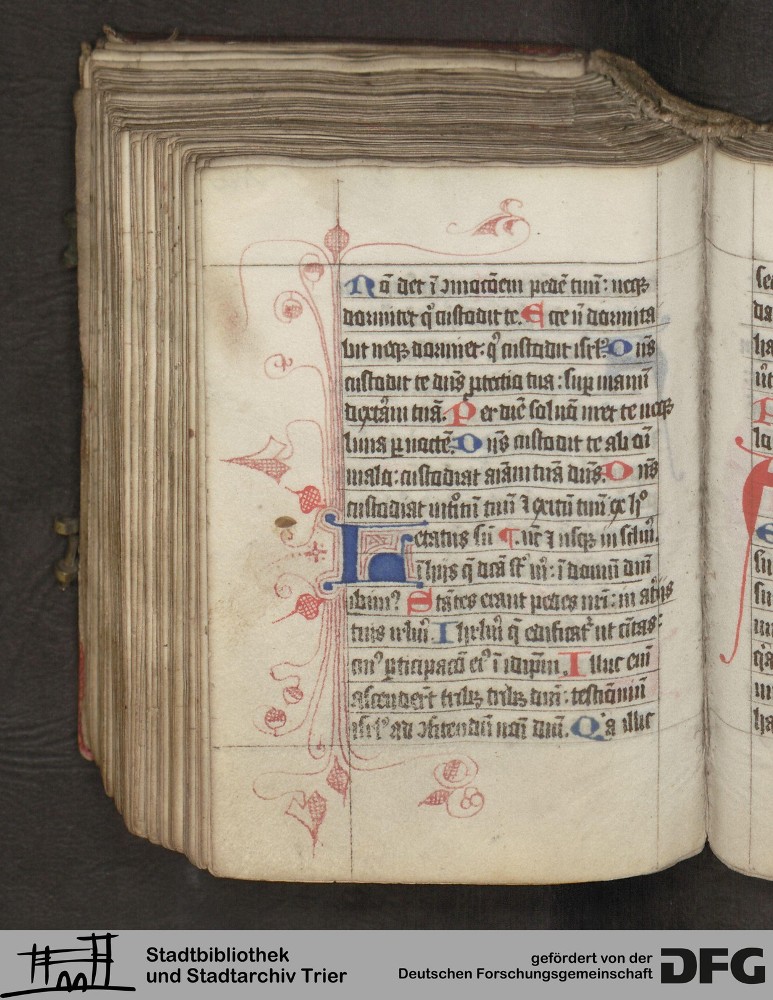 Nō det ī ɔmotōem pedē tuū: neqꝫ
dormitet q̄ custodit te. Ecce nō dormita
bit neqꝫ dormiet: q̄ custodit isrl̄. Dn̄s
custodit te dn̄s ꝓtectio tua: suꝑ manū
dext̄am tuā. Per diē sol nō uret te neqꝫ
luna ꝑ noctē. Dn̄s custodit te ab oī
malo: custodiat aīam tuā dn̄s. Dn̄s
custodiat introitū tuū ⁊ exitū tuū ex hͦ
Letatus sū
ī hijs q̄ dc̄a st̄ m̄: ī domū dn̄i
ibimꝰ Stātes erant pedes nr̄i: in atrijs
tuis irl̄m. Ihrl̄m q̄ edificat̄ ut ciuitas:
cuiꝰ ꝑticipatō eiꝰ ī idip̄m. Illuc em̄
ascendert̄ tribꝫ tribꝫ dn̄i: testīoniū
isrl̄ ad ɔfitendū noī dn̄i. Qͥa illuc
Stadtbibliothek
und Stadtarchiv Trier
gefördert von der
Deutschen Forschungsgemeinschaft
DFG